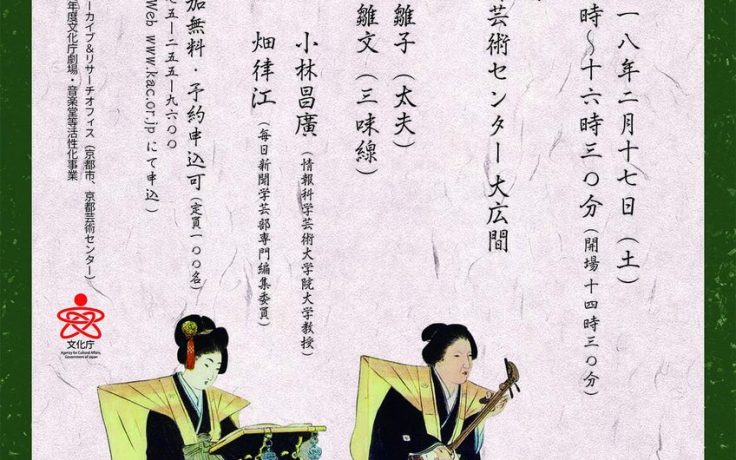 一八年二月十七日（土）
時〜十六時三〇分（開場十四時三〇分）
芸術センター 大広間
雛子（太夫）
雛文（三味線）
小林昌廣（情報科学芸術大学院大学教授）
畑律江（毎日新聞学芸部専門編集委員）
加無料・予約申込可（定員一〇〇名）
七五ー二五五ー九六〇〇
Web www.kac.or.jp にて申込）
ーカイブ&リサーチオフィス（京都市、京都芸術センター）
年度文化庁劇場・音楽堂等活性化事業
文化庁
Agency for Cultural Affairs,
Government of Japan